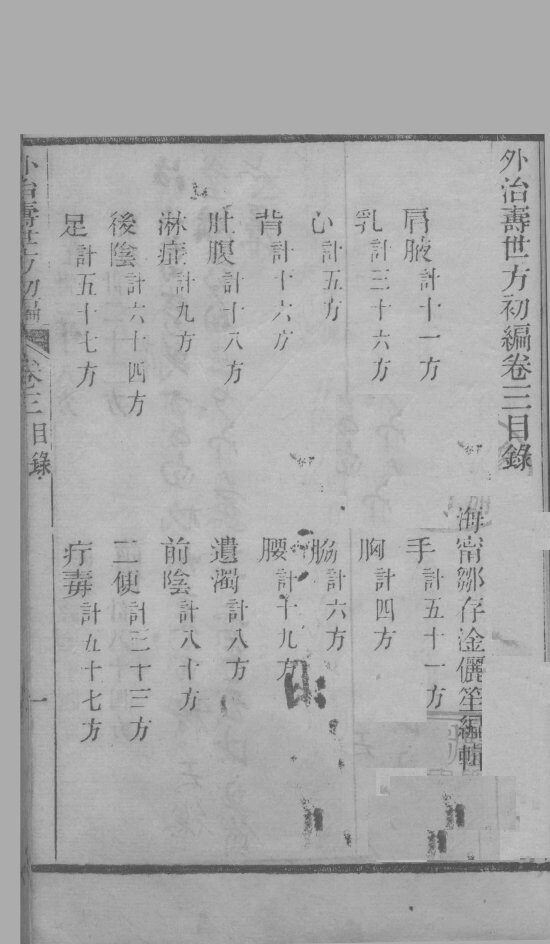 外治壽世方初編卷三目錄
海甯鄒存淦儷笙編輯
肩腋計十一方
手計五十一方
乳計三十六方
胸計四方
心計五方
脇計六方
背計十六方
腰計十九方
肚腹計十八方
遺濁計八方
淋症計九方
前陰計八十方
後陰計六十四方
二便計三十三方
足計五十七方
疔毒計五十七方
外治壽世方初編 卷三目錄 一